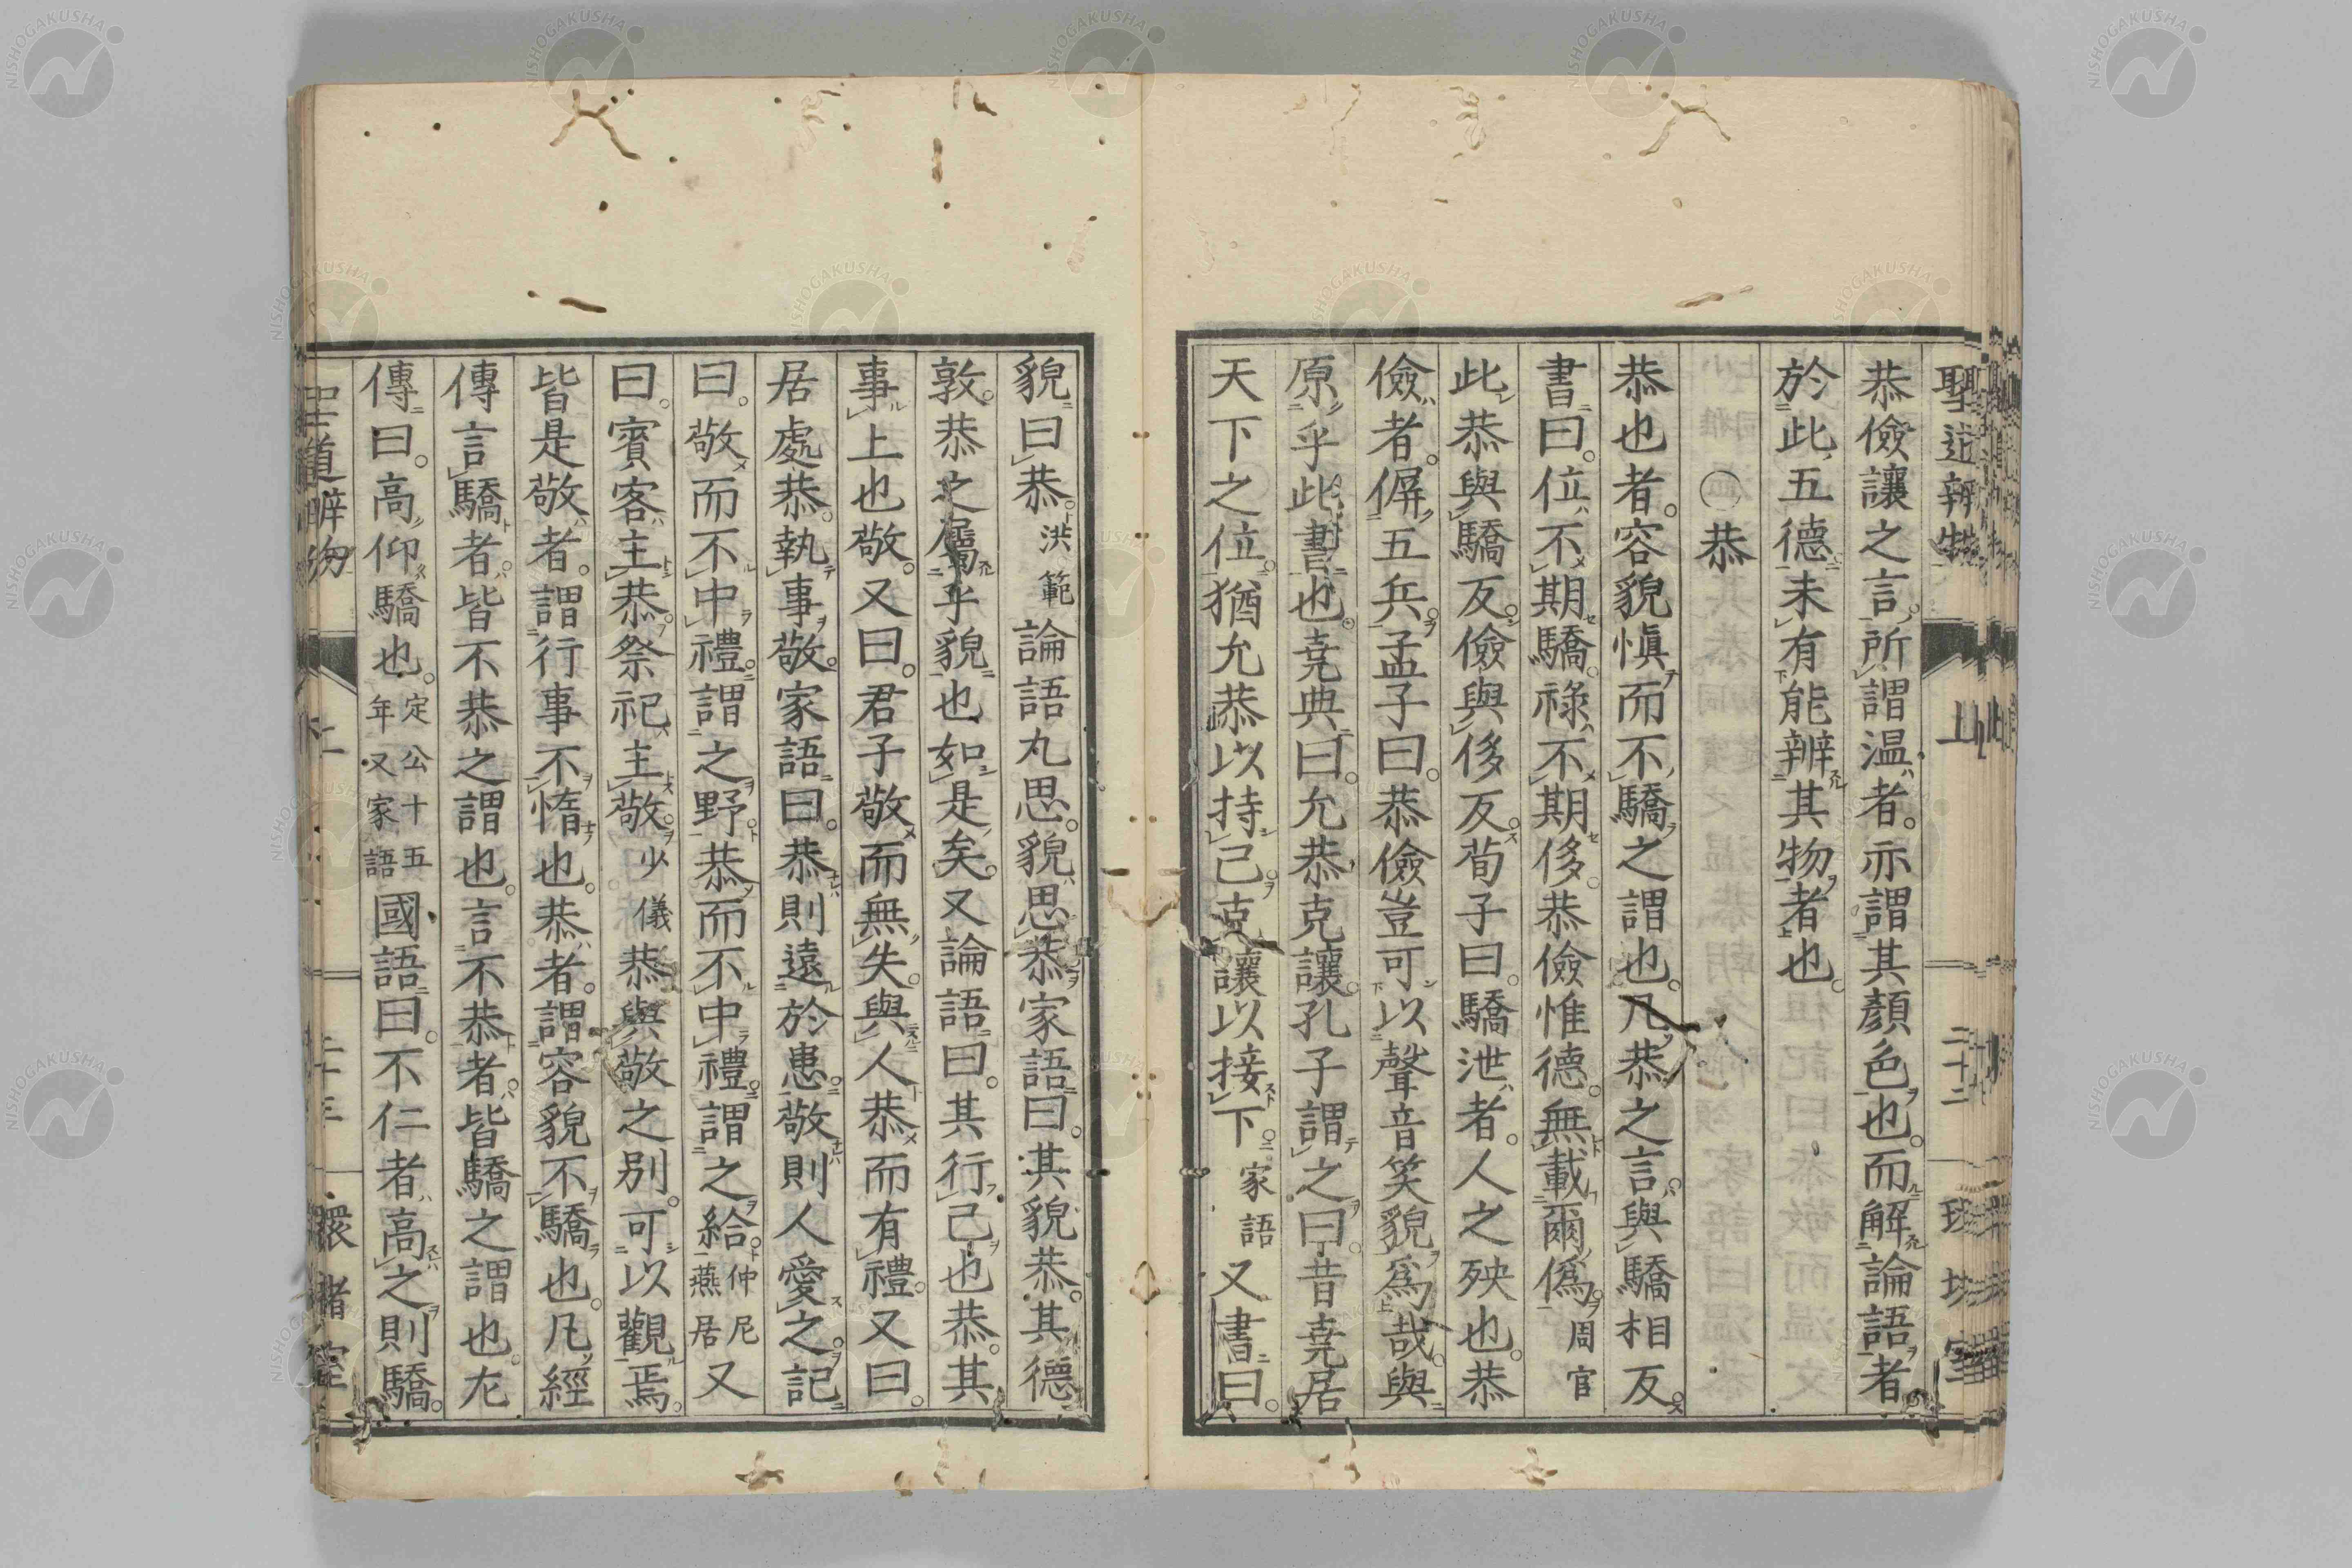 恭儉讓之言所謂温者亦謂其顏色也而解論語者
於此五德未有能辨其物者也
○恭
恭也者容貌愼而不驕之謂也凡恭之言與驕相反
書曰位不期驕祿不期侈恭儉惟德無載爾僞周官
此恭與驕反儉與侈反荀子曰驕泄者人之殃也恭
儉者偋五兵孟子曰恭儉豈可以聲音笑貌爲哉與
原乎此書也堯典曰允恭克讓孔子謂之曰昔堯居
天下之位猶允恭以持己克讓以接下家語又書曰
貌曰恭洪範論語九思貌思恭家語曰其貌恭其德
敦恭之屬乎貌也如是矣又論語曰其行己也恭其
事上也敬又曰君子敬而無失與人恭而有禮又曰
居處恭執事敬家語曰恭則遠於患敬則人愛之記
曰敬而不中禮謂之野恭而不中禮謂之給仲尼燕居又
曰賓客主恭祭祀主敬少儀恭與敬之別可以觀焉
皆是敬者謂行事不惰也恭者謂容貌不驕也凡經
傳言驕者皆不恭之謂也言不恭者皆驕之謂也左
傳曰高仰驕也定公十五年又家語國語曰不仁者高之則驕
聖道辨物
上
二十二
環堵室
NISHOGAKUSHA